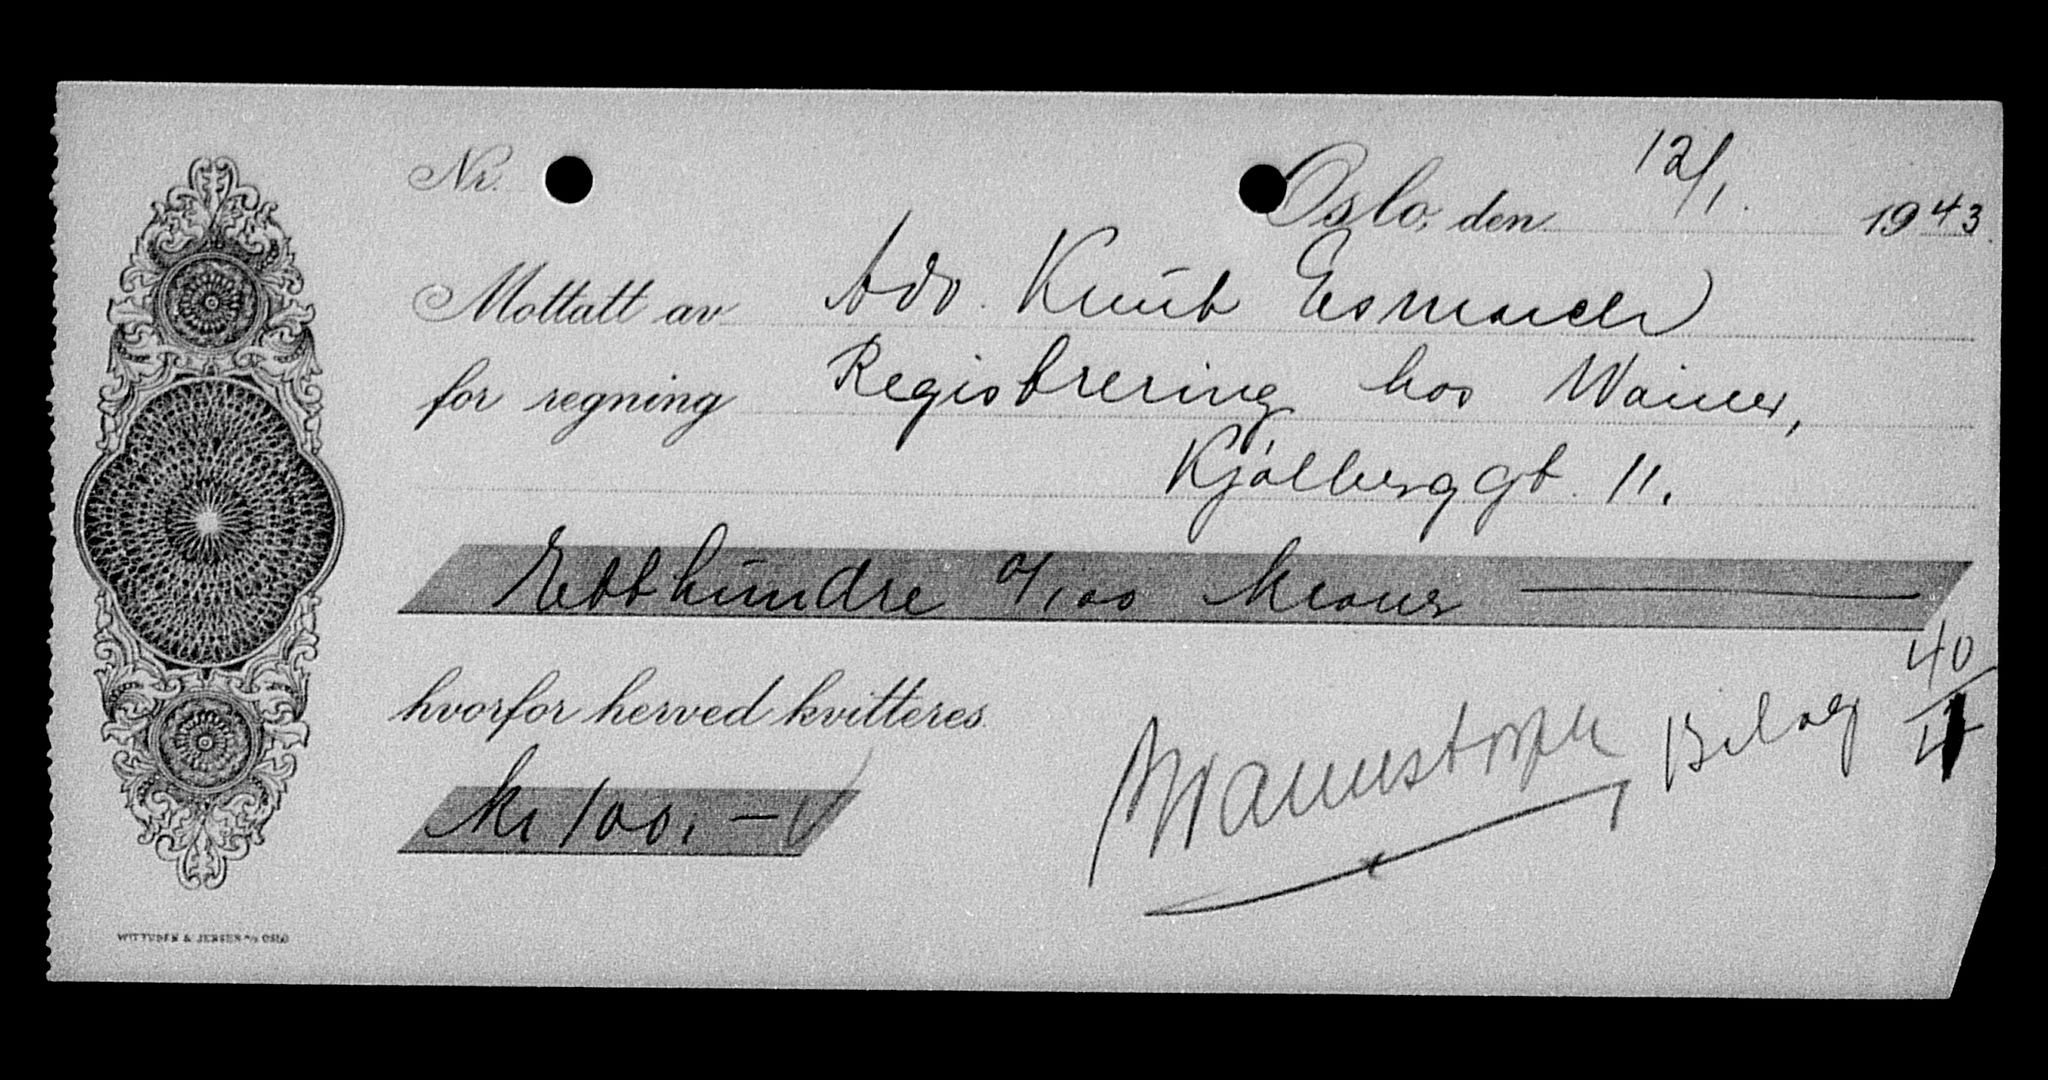 Nr.
Oslo, den 12/1. 1943.
Mottatt av Adv. Knut Esmarch
for regning Registrering hos Wainer,
Kjølberggt. 11.
Etthundre 0/100 kroner
hvorfor herved kvitteres.
Bilag 40/4
Kr 100.-
WITTUSEN & JENSEN A/S OSLO